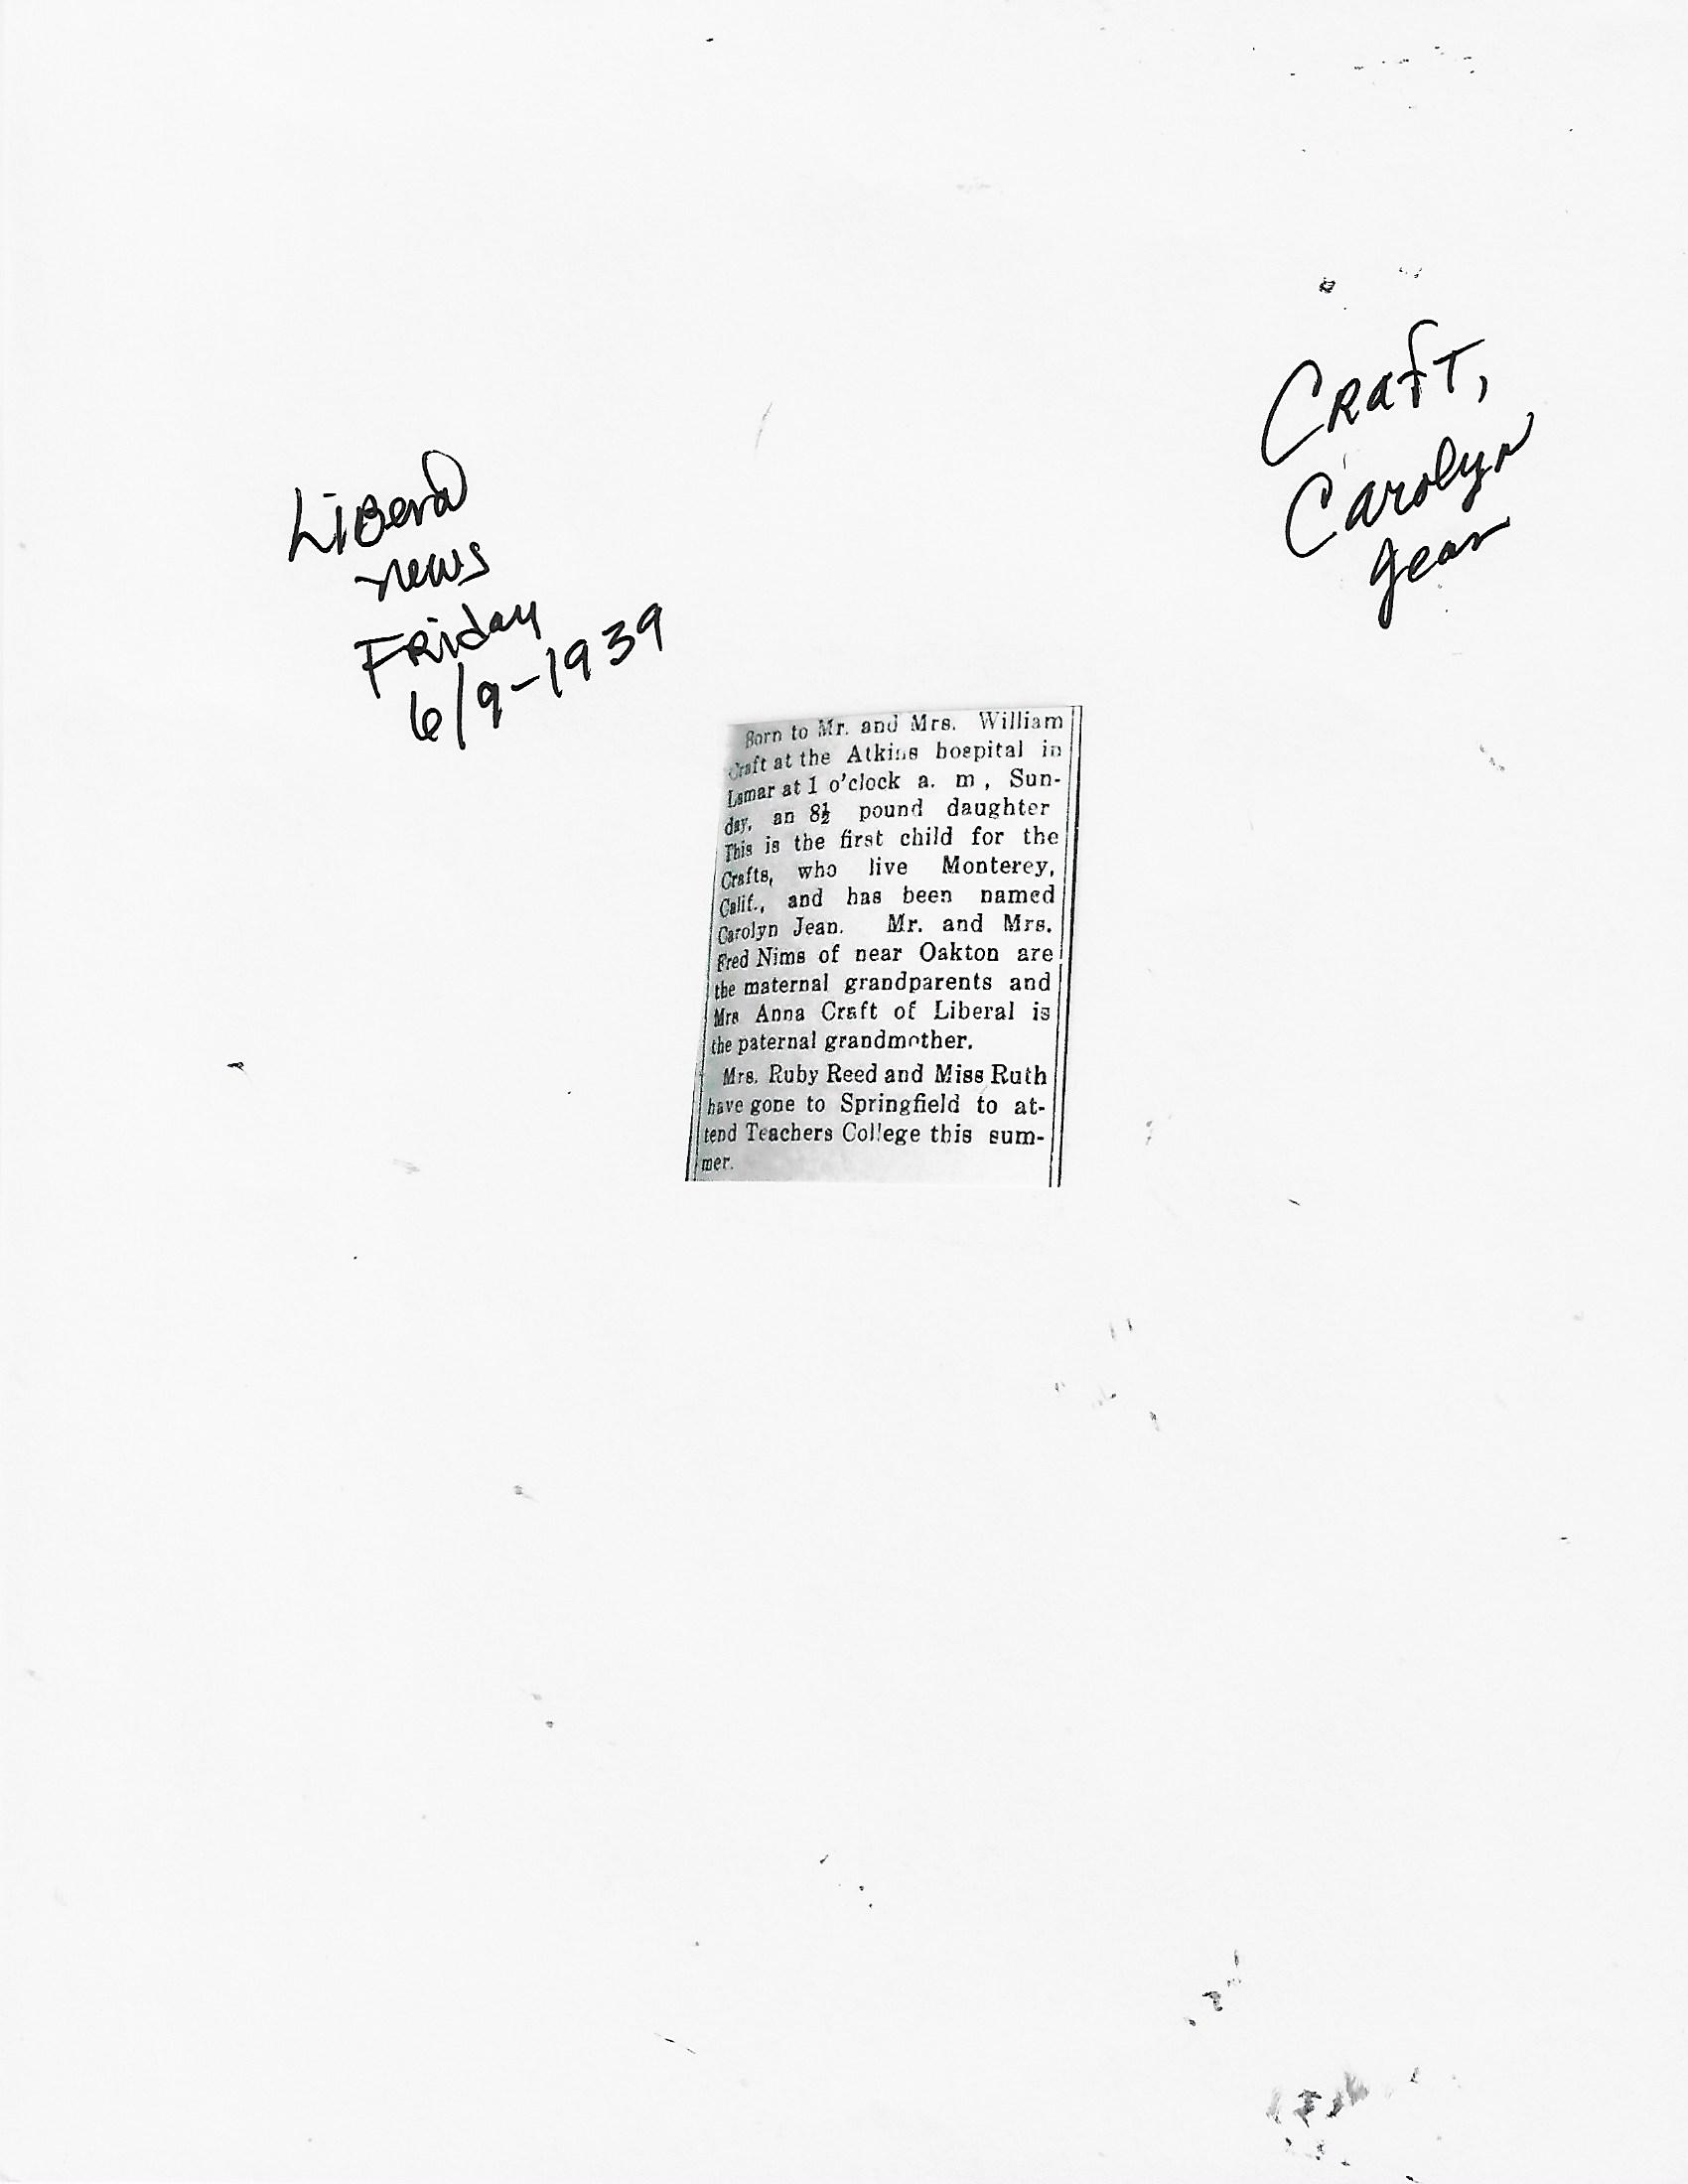 Craft,
Carolyn
Jean
Liberal
news
Friday
6/9-1939
Born to Mr. and Mrs. William
Craft at the Atkins hospital in
Lamar at 1 o'clock a. m , Sun-
day, an 8½ pound daughter
This is the first child for the
Crafts, who live Monterey,
Calif., and has been named
Carolyn Jean. Mr. and Mrs.
Fred Nims of near Oakton are
the maternal grandparents and
Mrs Anna Craft of Liberal is
the paternal grandmother.
Mrs. Ruby Reed and Miss Ruth
have gone to Springfield to at-
tend Teachers College this sum-
mer.